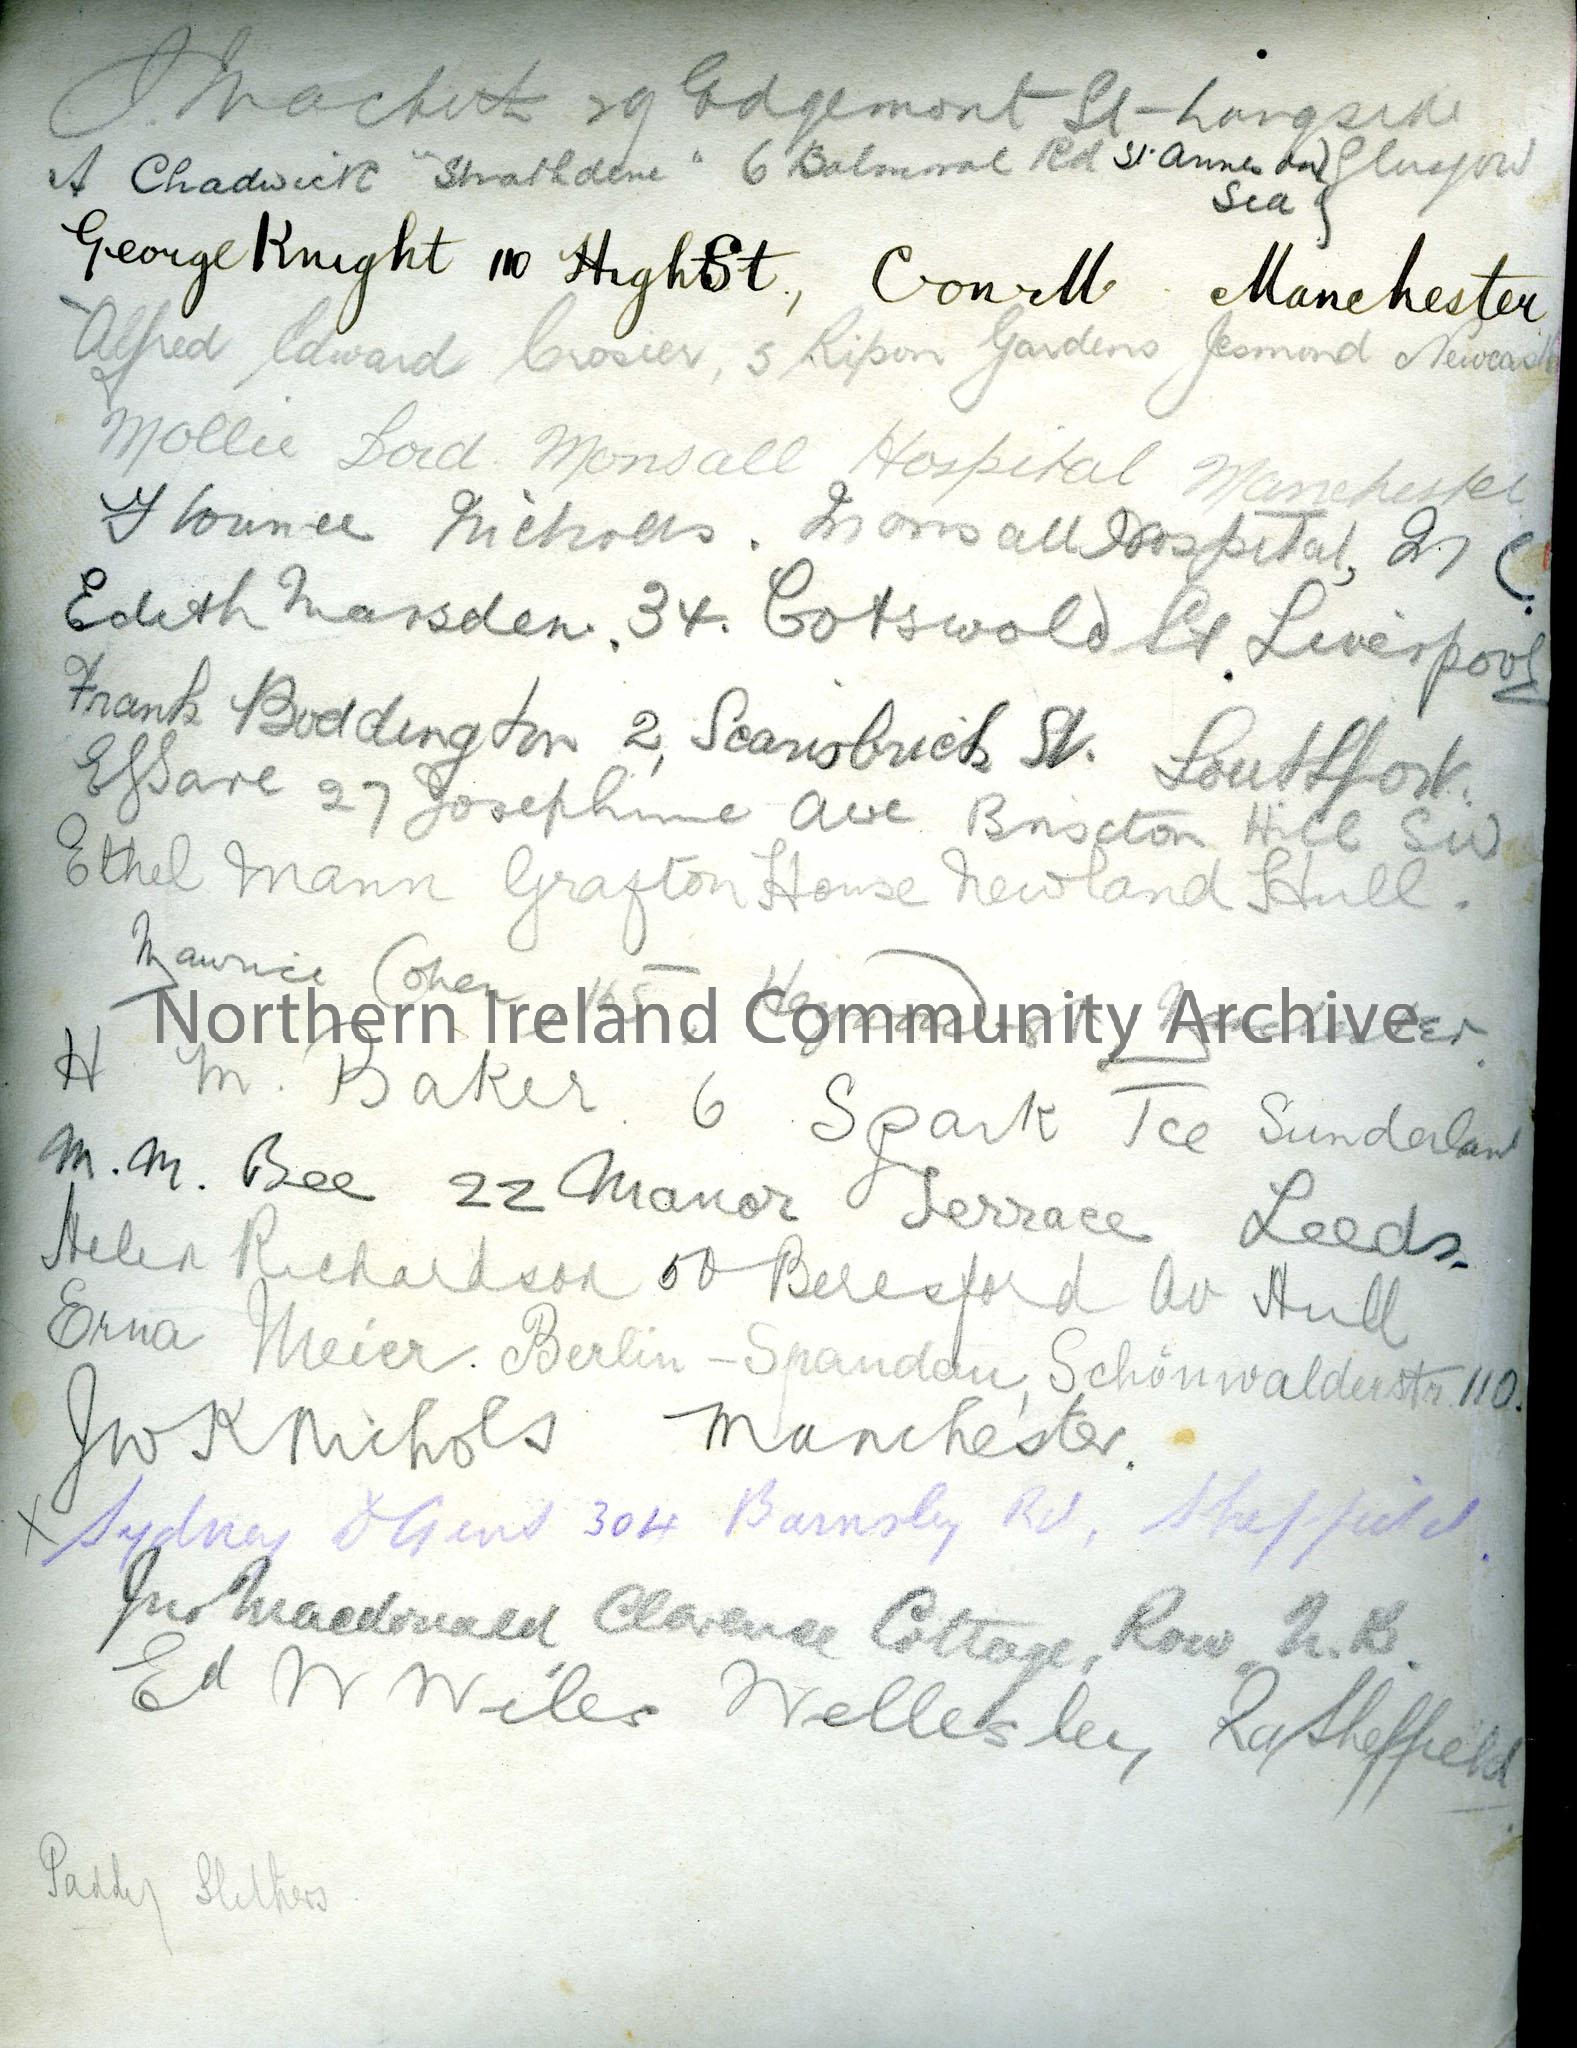 J. Macbeth 29 Edgemont St - Langside
Glasgow
A Chadwick "Strathdene" 6 Balmoral Rd St. Annes on
Sea
George Knight 110 High St, Manchester
Alfred Edward Crosier, 5 Ripon Gardens Jesmond Newcastle
Mollie Lord. Monsall Hospital Manchester
Nicholls. Monsall Hospital, M C.
Edith Marsden. 34. Cotswold St. Liverpool
Frank Boddington 2, Scarisbrick St. Southport.
27 Josephine Ave Brixton Hill SW
Ethel Mann Grafton House Newland Hull.
Maurice Cohen, 165, St Manchester.
Northern Ireland Community Archive
H M. Baker. 6 Spark Tce Sunderland
M. M. Bee 22 Manor Terrace Leeds.
Helen Richardson 50 Beresford Av Hull
Erna Meier. Berlin - Spandau, Schönwalderstr. 110.
J W K Nichols Manchester.
x Sydney 304 Barnsley Rd, Sheffield.
Jno Macdonald, Clarence Cottage, Row, N.B.
Ed W Wiles Wellesley Rd Sheffield
Paddy Slithers